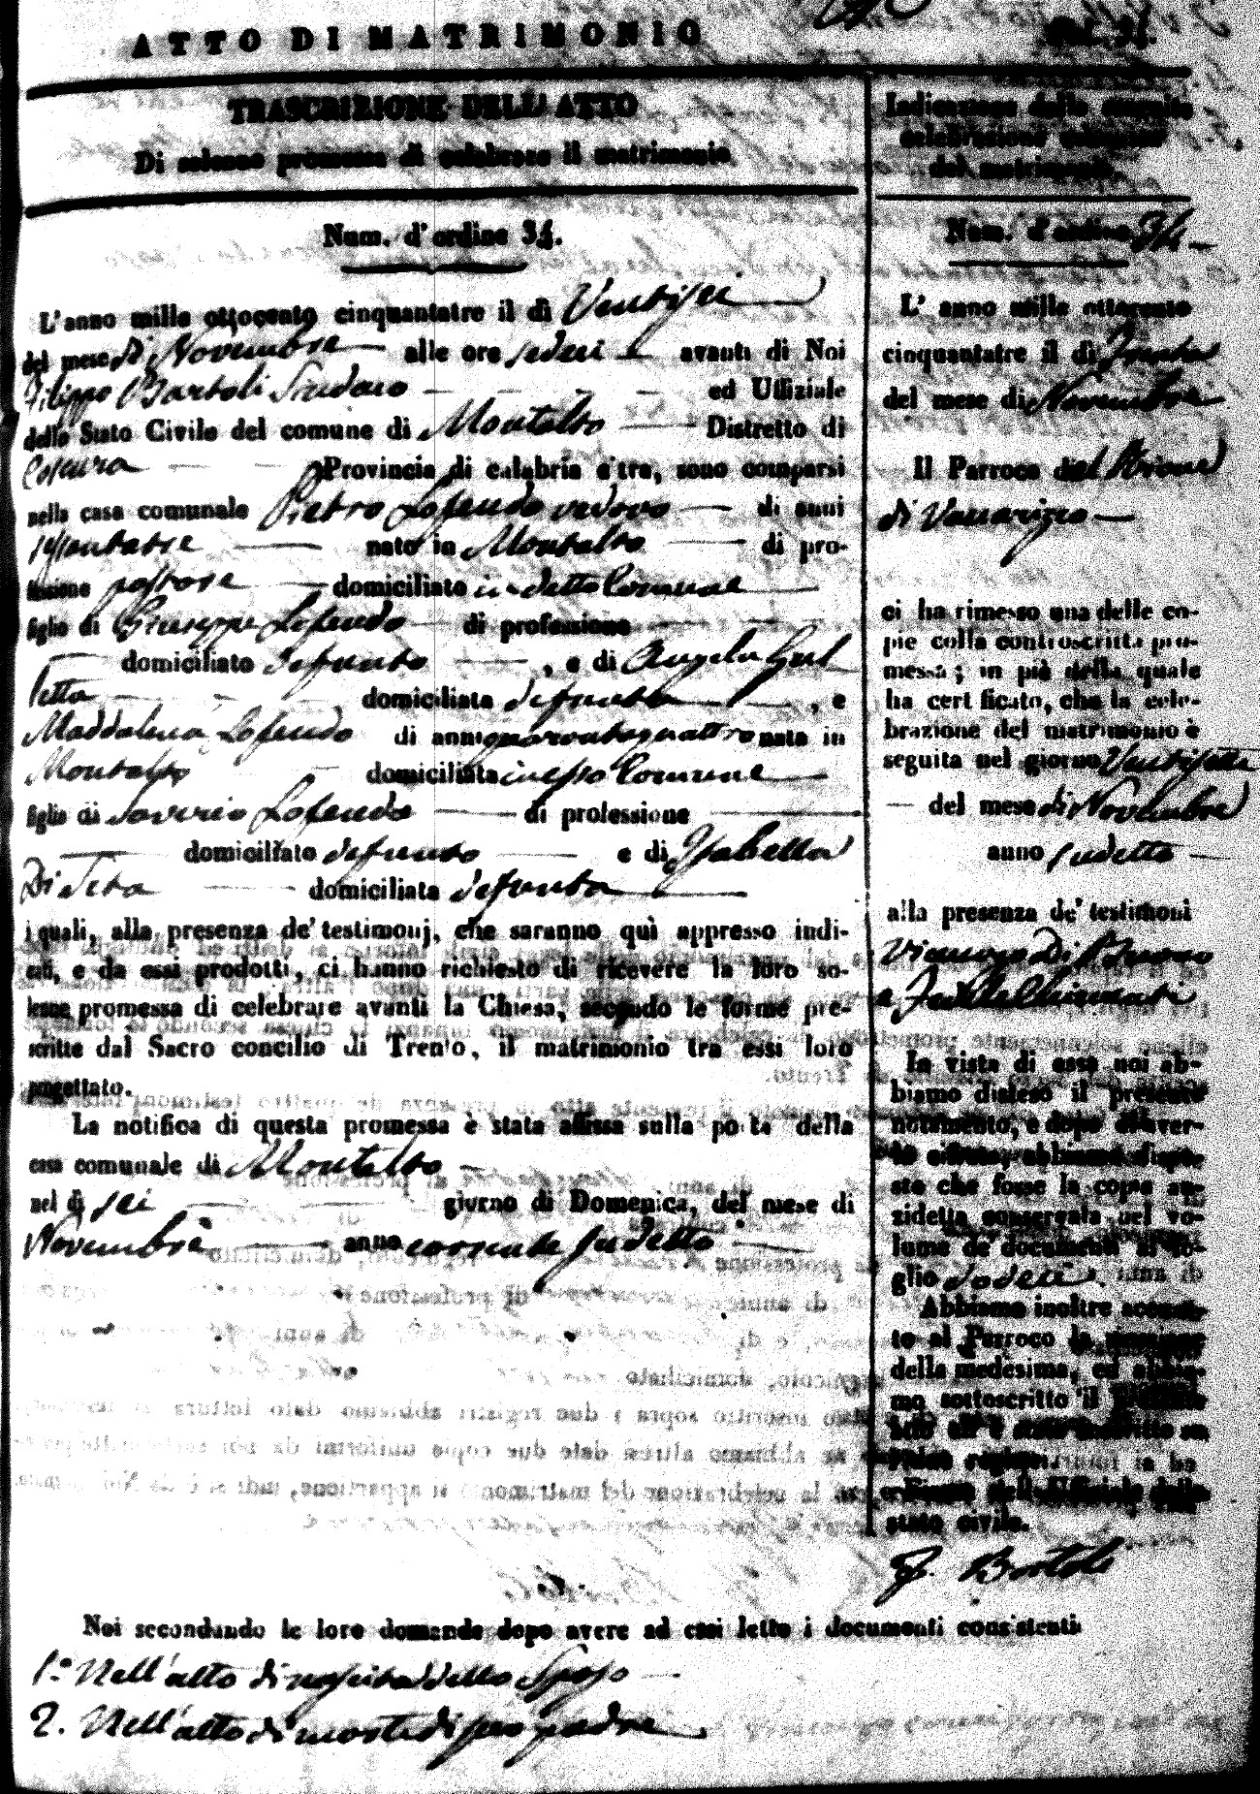 ATTO DI MATRIMONIO
TRASCRIZIONE DELL' ATTO
Di solenne promessa di celebrare il matrimonio
Num. d'ordine 34.
L'anno mille ottocento cinquantatre il dì Ventisei
del mese di Novembre alle ore sedeci avanti di Noi
Filippo Bartoli Sindaco ed Uffiziale
dello Stato Civile del comune di Montalto Distretto di
Cosenza Provincia di calabria citra, sono comparsi
nella casa comunale Pietro Lofendo vedovo di anni
nato in Montalto di pro-
fessione pastore domiciliato in detto Comune
figlio di Giuseppe Lofendo di professione
domiciliato defunto , e di Angela
domiciliata defunta , e
Maddalena Lofendo di anni quarantaquattro nata in
Montalto domiciliata in esso Comune
figlia di Saverio Lofendo di professione
domiciliato defunto e di Isabella
Di Seta domiciliata defunta
i quali, alla presenza de' testimonj, che saranno quì appresso indi-
cati, e da essi prodotti, ci hanno richiesto di ricevere la loro so-
lenne promessa di celebrare avanti la Chiesa, secondo le forme pre-
scritte dal Sacro concilio di Trento, il matrimonio tra essi loro
progettato.
La notifica di questa promessa è stata affissa sulla porta della
casa comunale di Montalto
nel dì sei giorno di Domenica, del mese di
Novembre anno corrente sudetto
Noi secondando le loro domande dopo avere ad essi letto i documenti consistenti
1.° Nell'atto di nascita dello Sposo
2. Nell'atto di morte di suo padre
Indicazione della seguita
celebrazione
del matrimonio
Num. d'ordine 34
L' anno mille ottocento
cinquantatre il dì Trenta
del mese di Novembre
Il Parroco del Rione
di Vaccarizzo
ci ha rimesso una delle co-
pie colla controscritta pro-
messa; in piè della quale
ha certificato, che la cele-
brazione del matrimonio è
seguita nel giorno Ventisette
del mese di Novembre
anno sudetto
alla presenza de' testimoni
Vincenzo Di Bruno
e
In vista di essa noi ab-
biamo disteso il presente
notamento, e dopo di aver-
lo cifrato, abbiamo dispo-
sto che fosse la copia an-
zidetta conservata nel vo-
lume de' documenti al fo-
glio dodeci.
Abbiamo inoltre accusa-
to al Parroco la ricezione
della medesima, ed abbia-
mo sottoscritto il presente
stato civile.
F. Bartoli